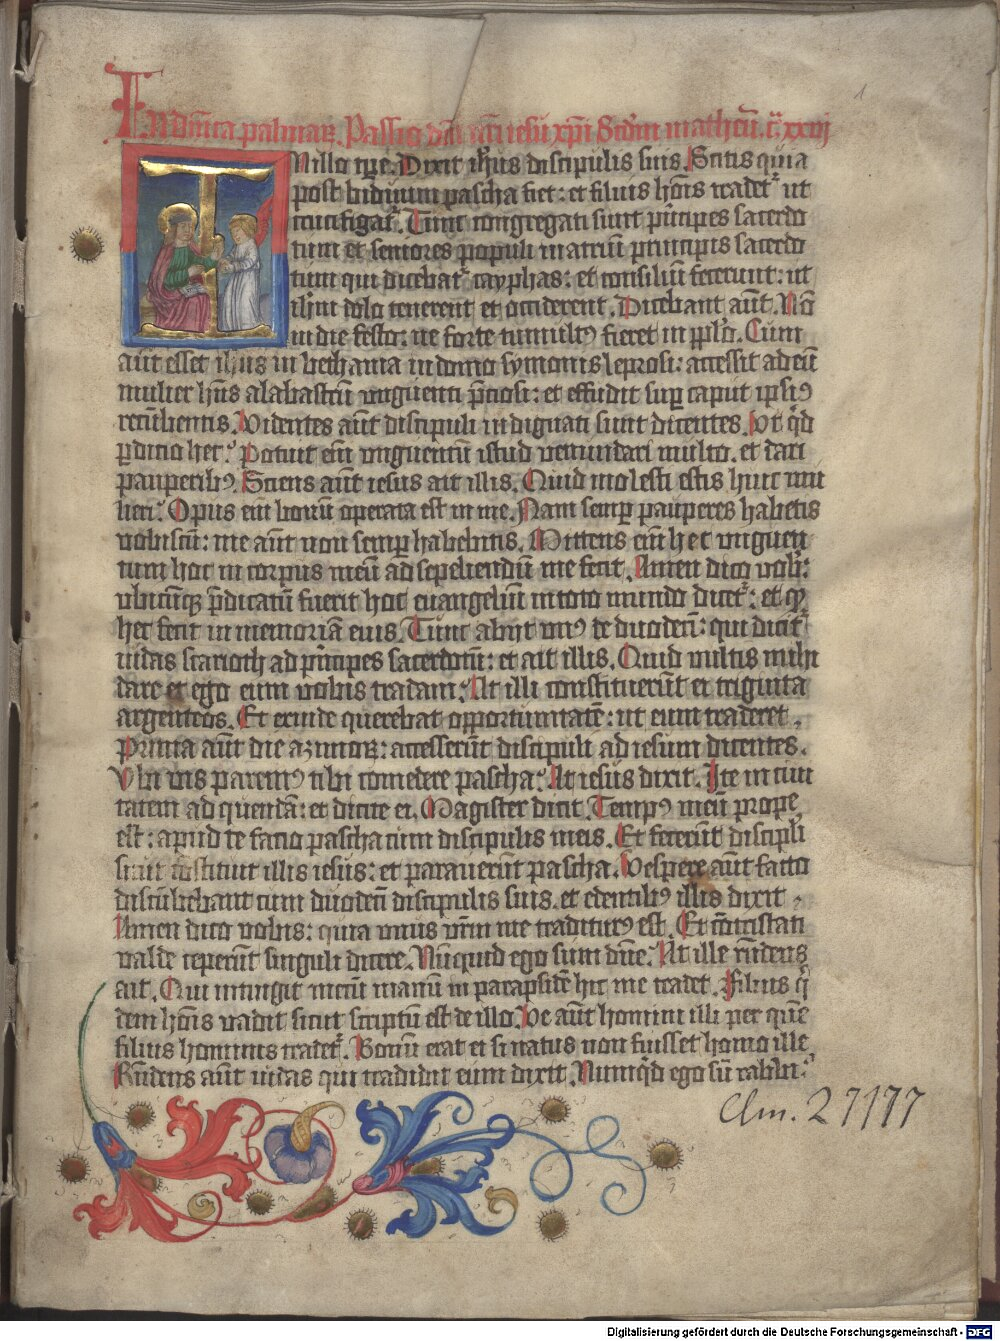 1
In dn̄ica palmaꝝ. Passio dn̄i nr̄i iesu xp̄i Scd̄m matheū. c̄ xxvi
In illo tp̄e. Dixit ih̄us discipulis suis. Scitis quia
post biduum pascha fiet: et filius hoīs tradet᷑ ut
crucifigat᷑. Tunc congregati sunt prīcipes sacerdo
tum et seniores populi in atriū principis sacerdo
tum qui dicebat᷑ cayphas: et consiliū fecerunt: ut
ih̄m dolo tenerent et occiderent. Dicebant aūt. Nō
in die festo: ne forte tumultꝰ fieret in pp̄lo. Cum
aūt esset ih̄us in bethania in domo symonis leprosi: accessit ad eū
mulier hn̄s alabastrū unguenti p̄ciosi: et effudit suꝑ caput ipsiꝰ
recūbentis. Videntes aūt discipuli indignati sunt dicentes. Vt qͥd
ꝑdicio hec? Potuit eīm unguentū istud venundari multo. et dari
pauperibꝰ. Sciens aūt iesus ait illis. Quid molesti estis huic mu
lieri? Opus eīm bonū operata est in me. Nam semꝑ pauperes habetis
vobiscū: me aūt non semꝑ habebitis. Mittens eīm hec unguen
tum hoc in corpus meū ad sepeliendū me fecit. Amen dico vob̄:
vbicūqꝫ p̄dicatū fuerit hoc euangeliū in toto mundo dicet᷑: et qͥ
hec fecit in memoriā eius. Tunc abijt vnꝰ de duodecī: qui dicit᷑
iudas scarioth ad prīcipes sacerdotū: et ait illis. Quid vultis mihi
dare et ego eum vobis tradam? At illi constituerūt ei triginta
argenteos. Et exinde querebat opportunitatē: ut eum traderet.
Prima aūt die azimoꝝ: accesserūt discipuli ad iesum dicentes.
Vbi vis paremꝰ tibi comedere pascha? At iesus dixit. Ite in ciui
tatem ad quendā: et dicite ei. Magister dicit. Tempꝰ meū prope
est: apud te facio pascha cum discipulis meis. Et fecerūt discipl̄i
sicut constituit illis iesus: et parauerūt pascha. Vespere aūt facto
discūbebant cum duodecī discipulis suis. et edentibꝰ illis dixit.
Amen dico vobis: quia vnus vr̄m me traditurꝰ est. Et cōtristati
valde ceperūt singuli dicere. Nūquid ego sum dn̄e? At ille rn̄dens
ait. Qui intingit mecū manū in parapside hic me tradet. Filius qͥ
dem hoīs vadit sicut scriptū est de illo. Ve aūt homini illi per quē
filius hominis tradet᷑. Bonū erat ei si natus non fuisset homo ille
Rn̄dens aūt iudas qui tradidit eum dixit. Numqͥd ego sū rabbi?
Clm. 27177
Digitalisierung gefördert durch die Deutsche Forschungsgemeinschaft - DFG